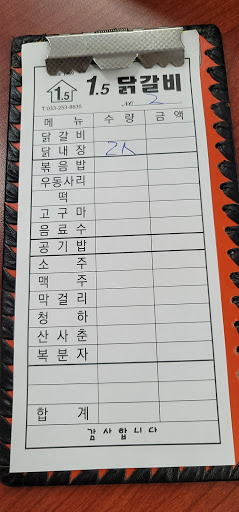 1.5
1.5 닭갈비
T.033-253-8635
No 2
메 뉴 수 량 금 액
닭 갈 비
닭 내 장 2人
볶 음 밥
우동사리
떡
고 구 마
음 료 수
공 기 밥
소 주
맥 주
막 걸 리
청 하
산 사 춘
복 분 자
합 계
감 사 합 니 다